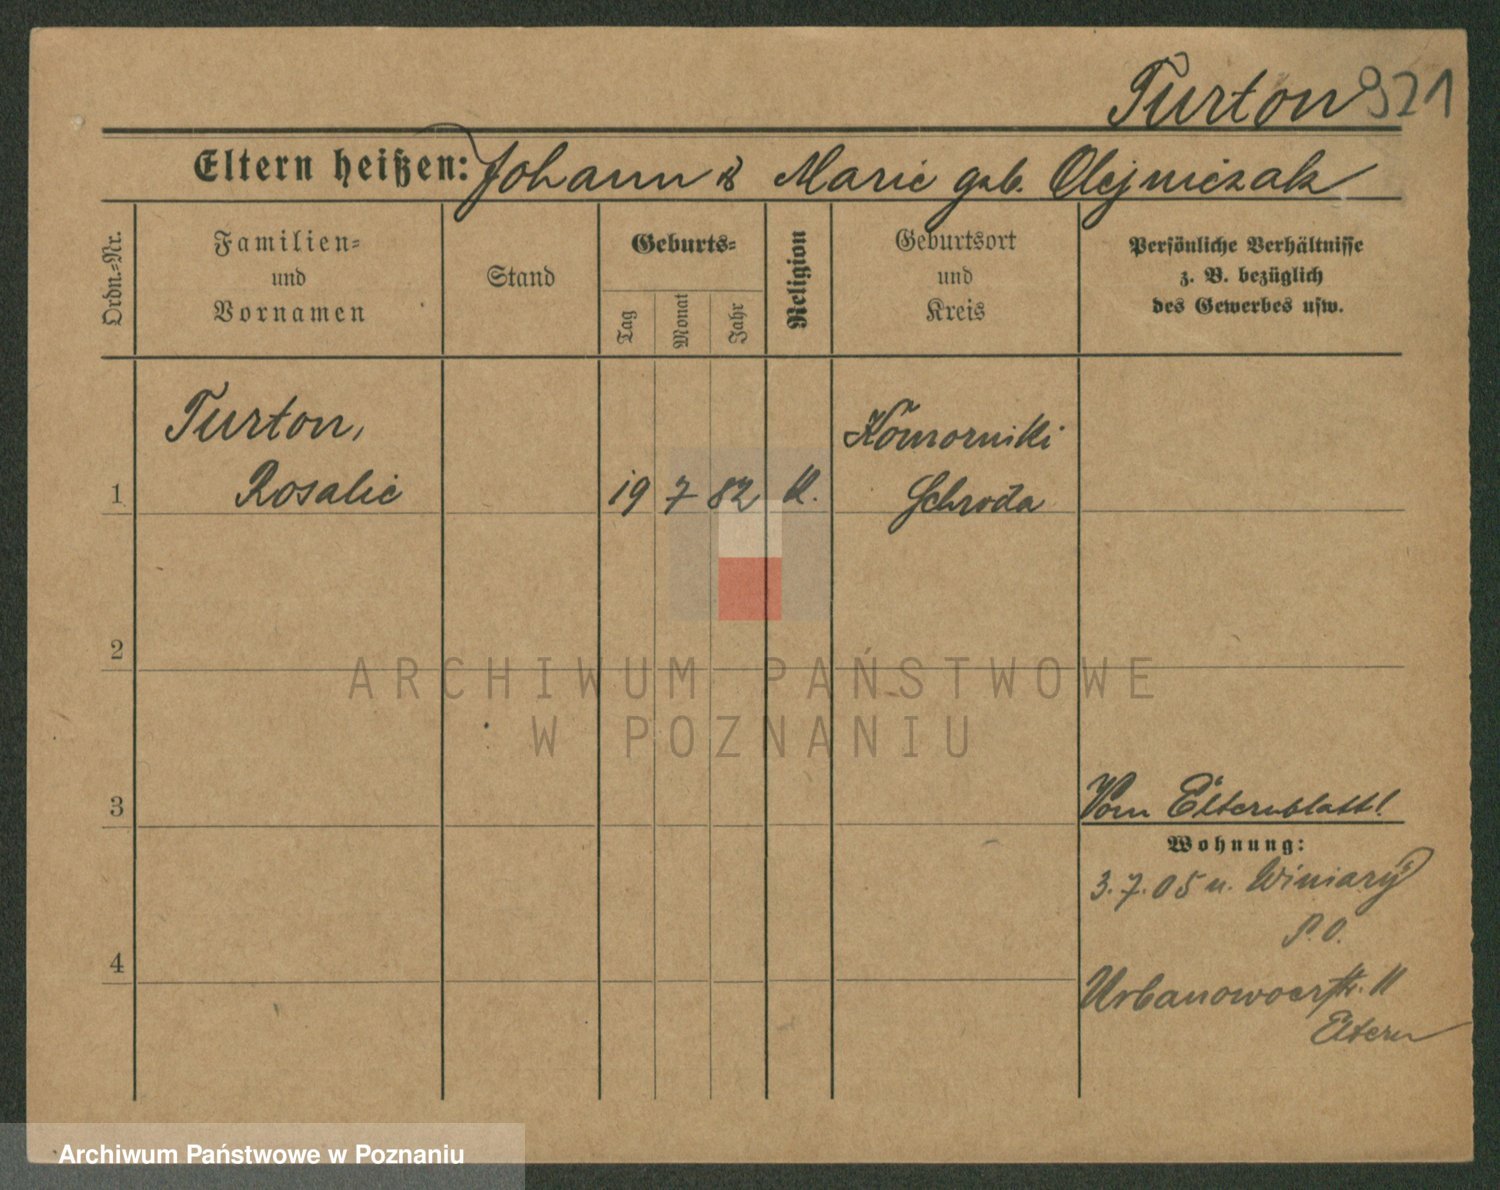 Turton 921
Eltern heißen: Johann & Marie geb. Olejniczak
Ordn.-Nr.
Familien-
und
Vornamen
Stand
Geburts-
Tag
Monat
Jahr
Religion
Geburtsort
und
Kreis
Persönliche Verhältnisse
z. B. bezüglich
des Gewerbes usw.
Turton,
Komorniki
1 Rosalie 19 7 82 K.
Schroda
2
ARCHIWUM PAŃSTWOWE
W POZNANIU
3
Vom Elternblatt!
Wohnung:
3.7.05 n. Winiary
P. O.
4
Urbanowoerstr. 11
Eltern
Archiwum Państwowe w Poznaniu